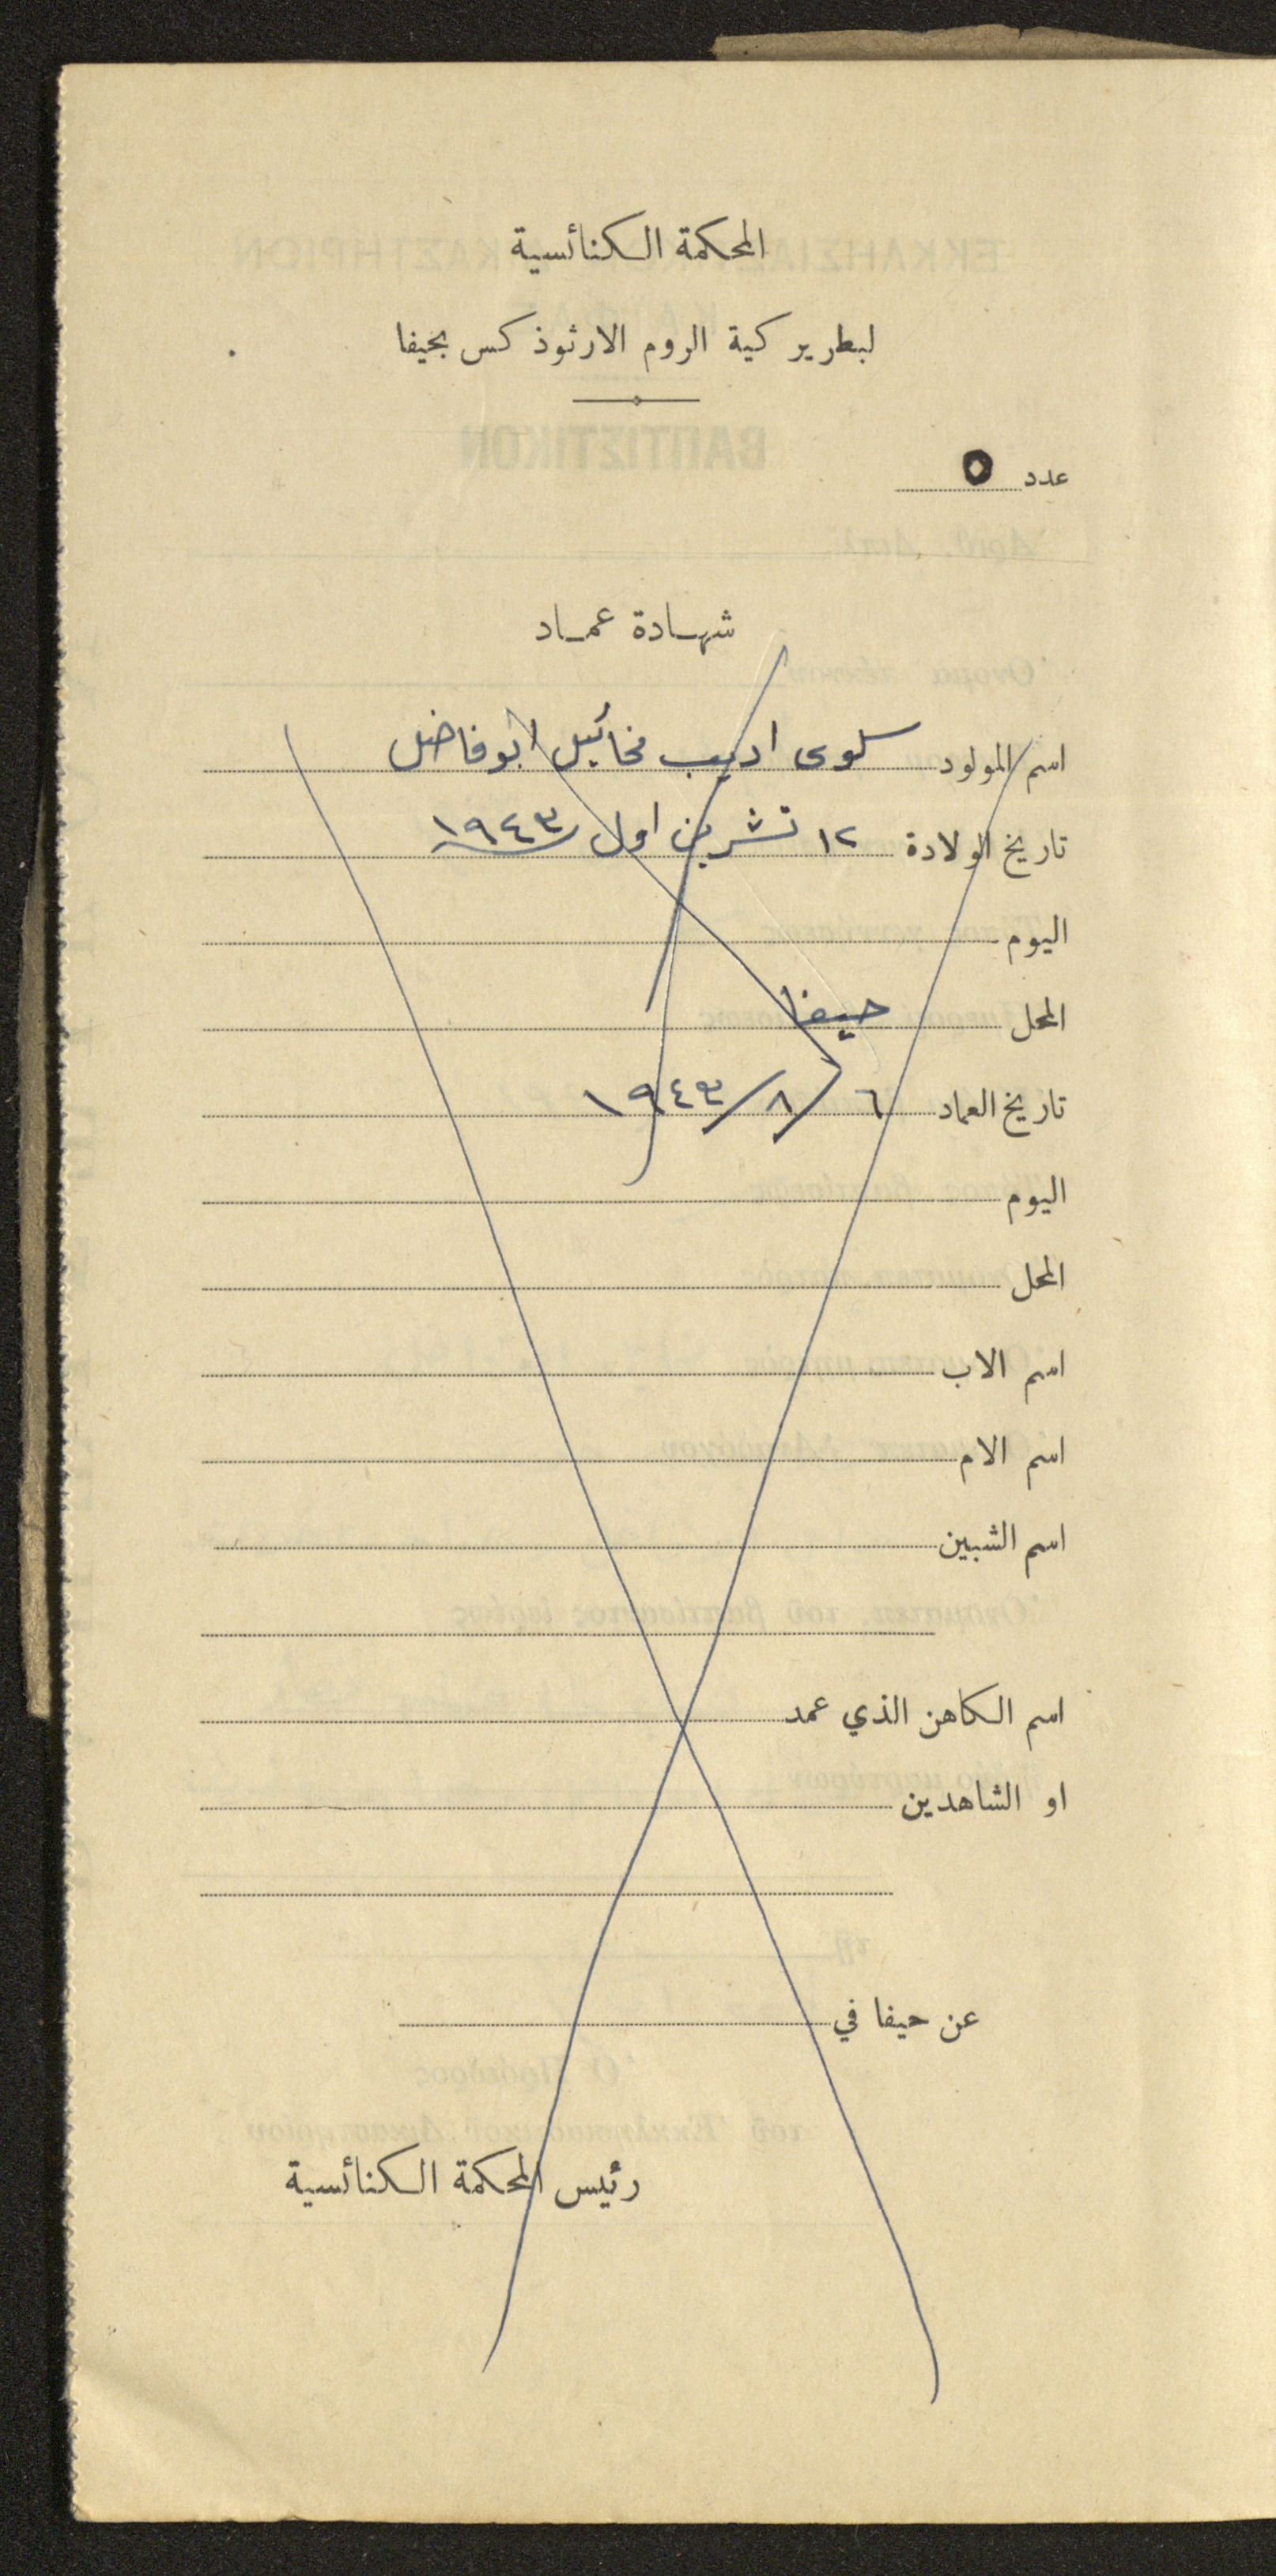 المحكمة الكنائسية
لبطريركية الروم الارثوذكس بحيفا
عدد ٥
شهادة عماد
اسم المولود سلوى اديب مخائيل ابوفاضل
تاريخ الولادة ١٢ تشرين اول ١٩٤٣
اليوم
المحل حيفا
تاريخ العماد ٦/٨/١٩٤٣
اليوم
المحل
اسم الاب
اسم الام
اسم الشبين
اسم الكاهن الذي عمد
او الشاهدين
عن حيفا في
رئيس المحكمة الكنائسية